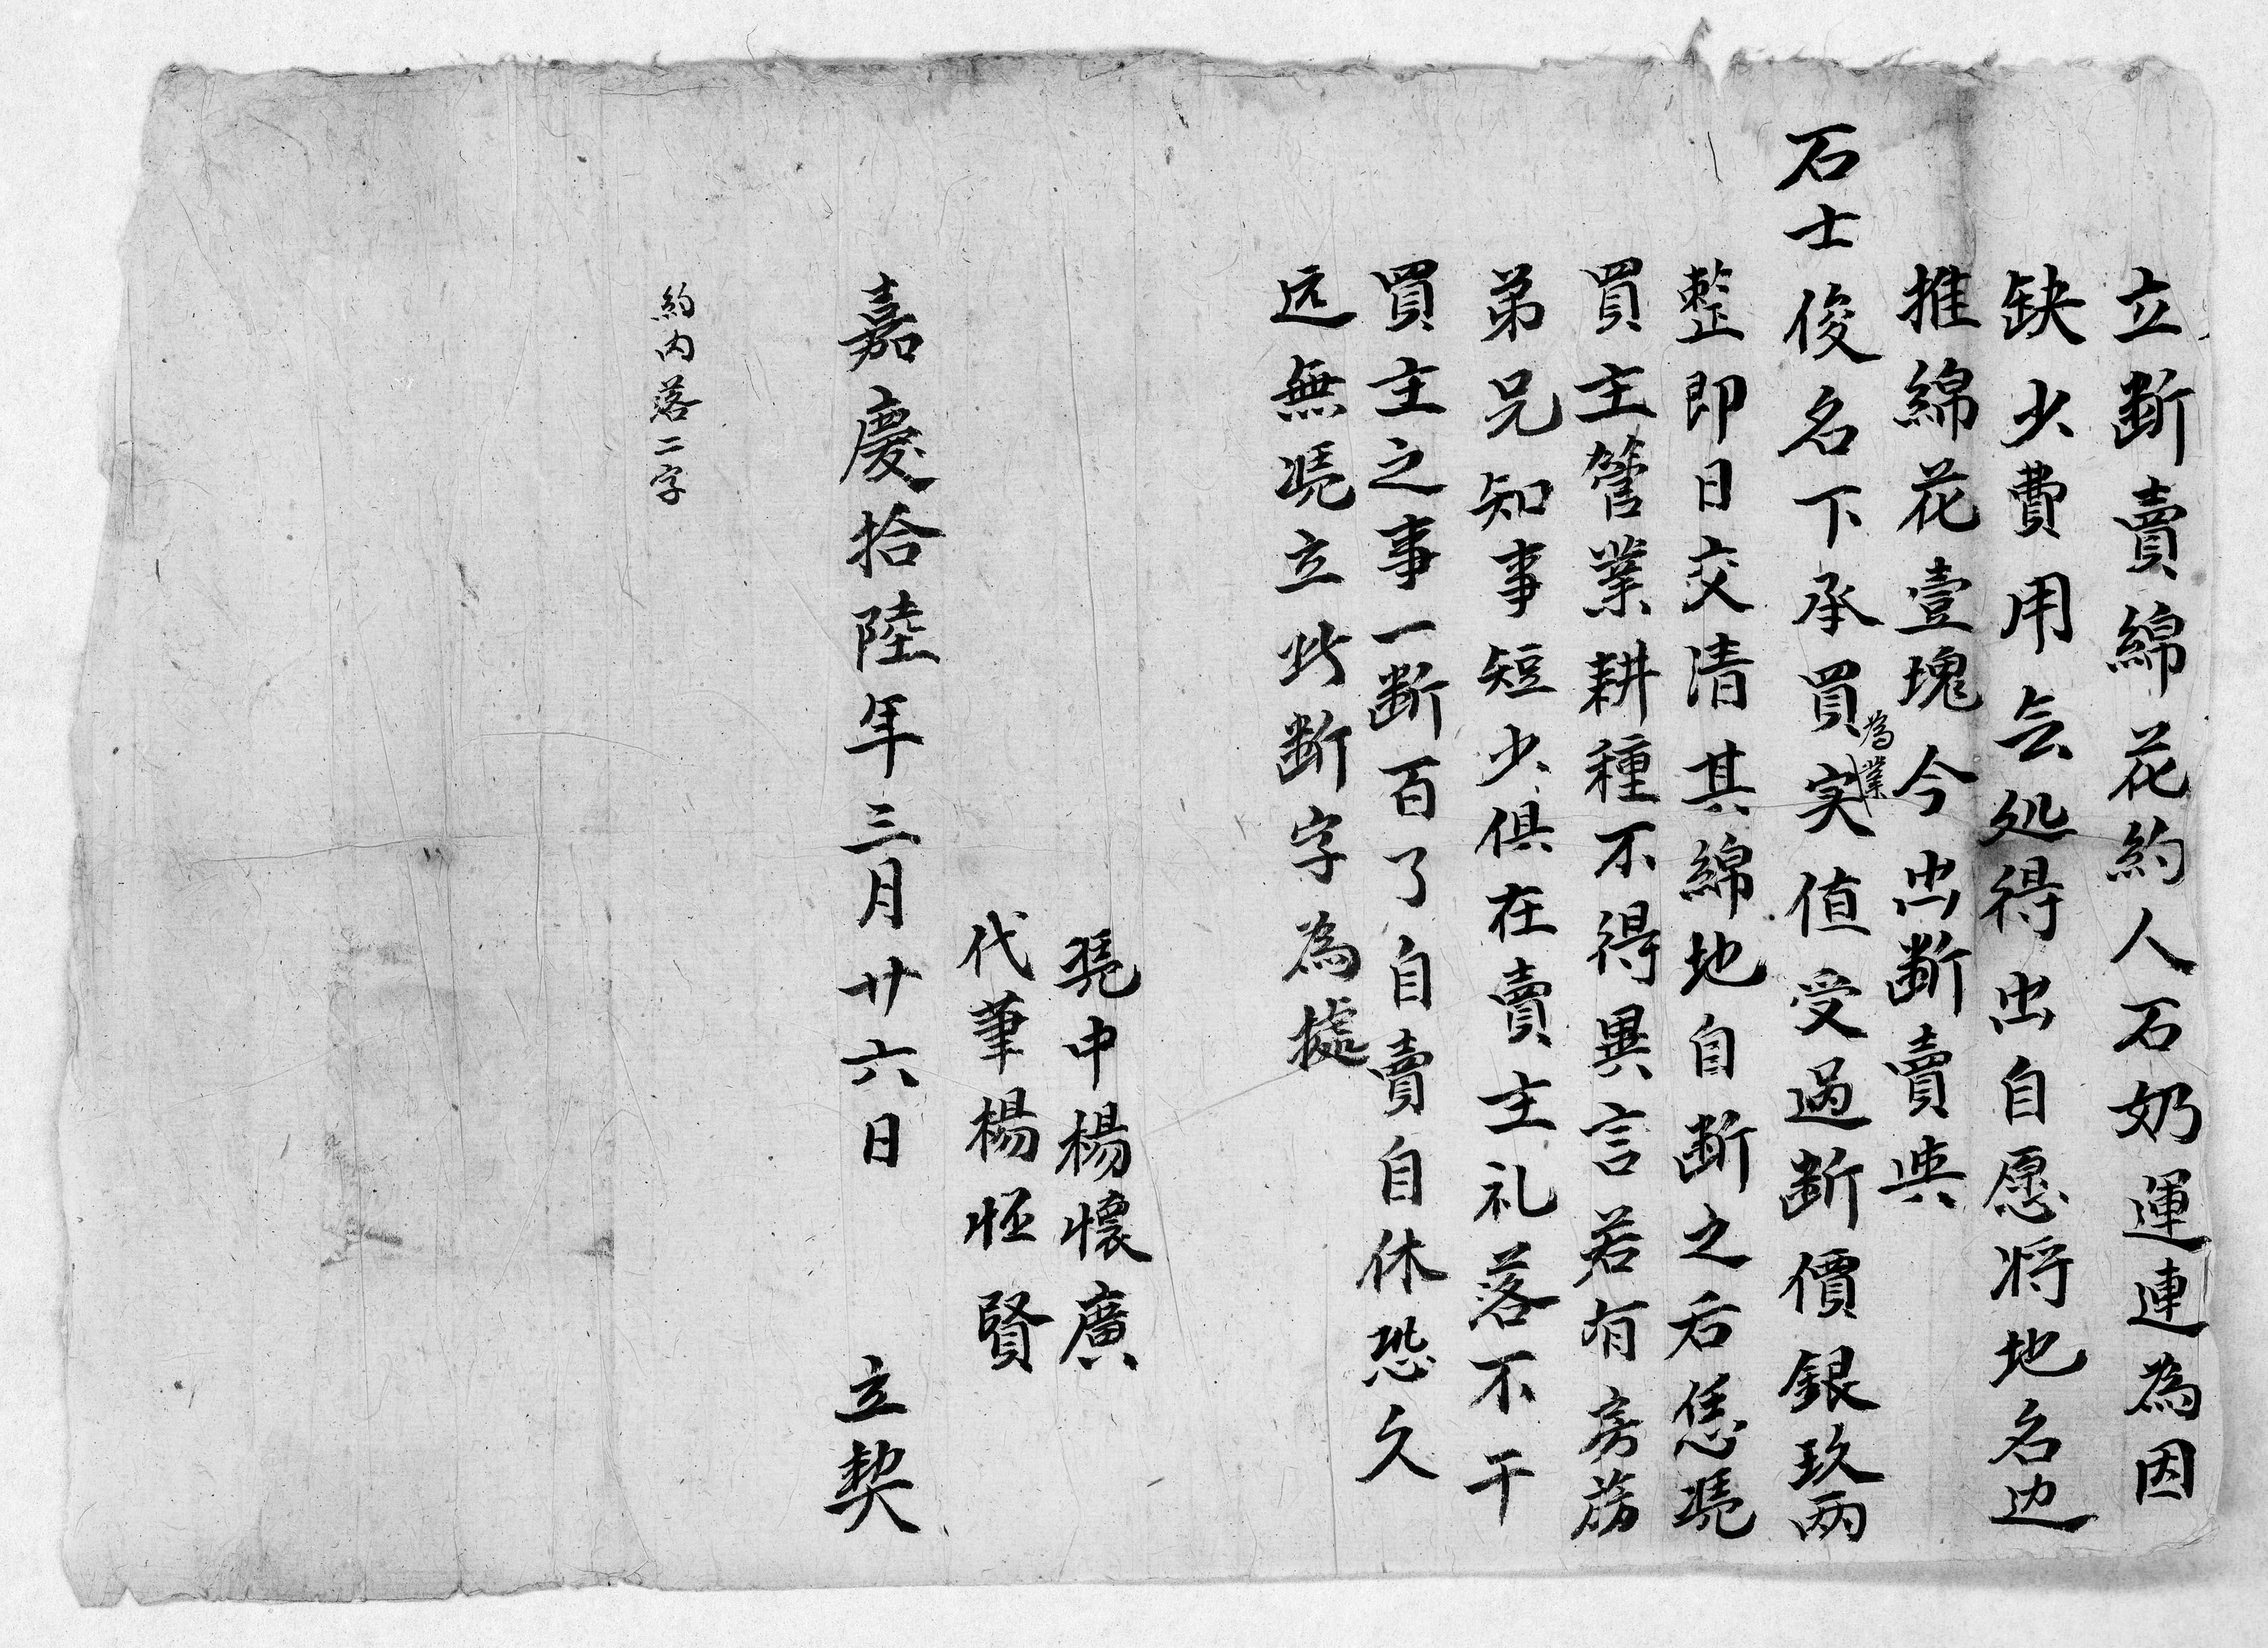 立断賣綿花約人石奶運連為因
缺少費用无処得出自愿将地名边
推綿花壹塊今出断賣與
石士俊名下承買為業実值受過断價銀玖两
整即日交清其綿地自断之后恁凴
買主管業耕種不得異言若有房族
弟兄知事短少俱在賣主礼落不干
買主之事一断百了自賣自休恐久
远無凴立此断字為據
凴中楊懷廣
代筆楊怌賢
嘉慶拾陸年三月廿六日 立契
約内落二字